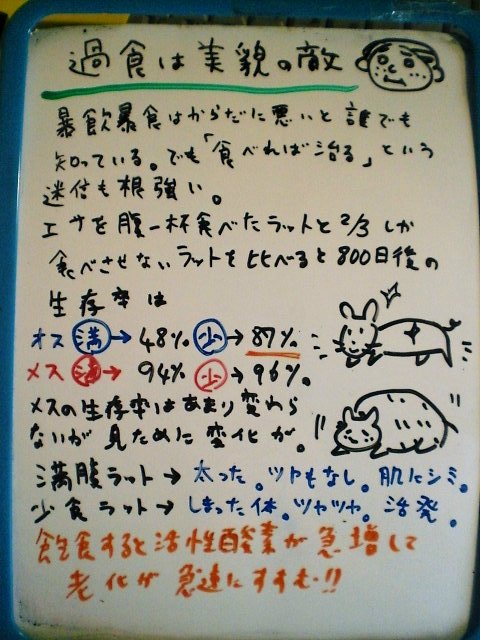 過食は美貌の敵
暴飲暴食はからだに悪いと誰でも
知っている。でも「食べれば治る」という
迷信も根強い。
エサを腹一杯食べたラットと2/3しか
食べさせないラットを比べると800日後の
生存率は
オス満→48% 少→87%
メス満→94% 少→96%。
メスの生存率はあまり変わら
ないが見ために変化が。
満腹ラット→太った。ツヤもなし。肌にシミ。
少食ラット→しまった体。ツヤツヤ。活発。
飽食すると活性酸素が急増して
老化が急速にすすむ!!